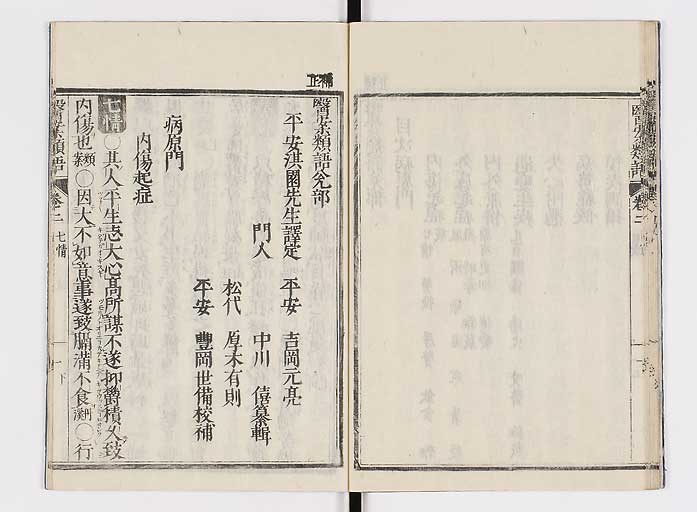 醫案類語 卷二
補正
醫案類語兊部
平安淇園先生譯定
平安 吉岡元亮
門人 中川 僖纂輯
松代 厚木有則
平安 豐岡世備校補
病原門
内傷起症
七情○其人平生志大心髙所謀不遂抑欝積久致
内傷也類案○因大不如意事遂致膈滿不食○行
醫案類語 卷二 七情 一 下